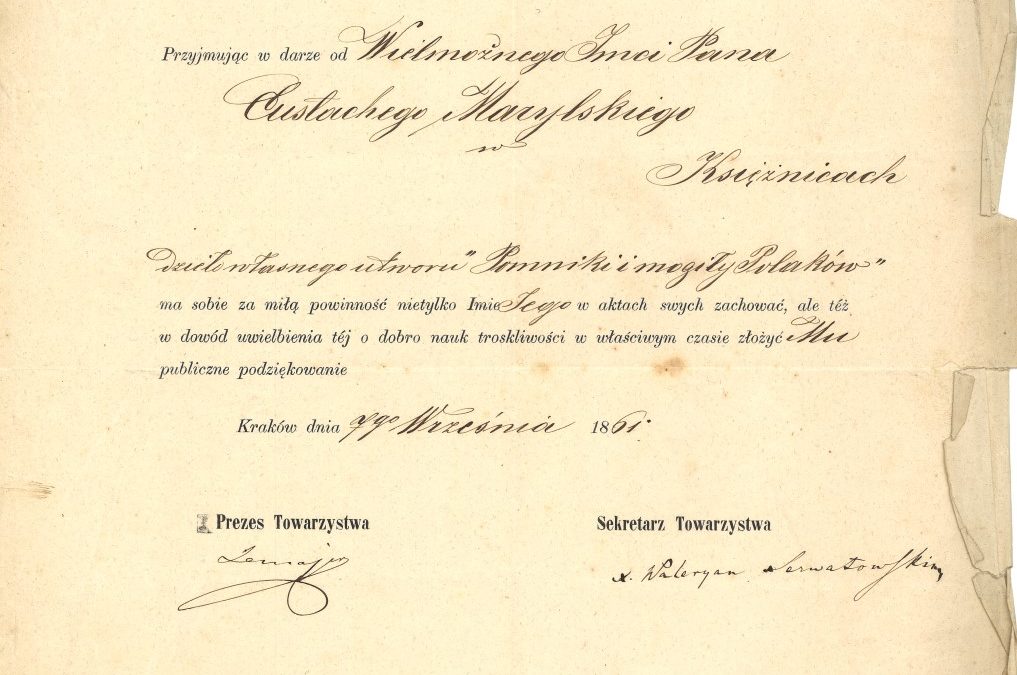 Przyjmując w darze od Wielmożnego Imci Pana
Eustachego Marylskiego
w
Książnicach
dzieło własnego utworu "Pomniki i mogiły Polaków"
ma sobie za miłą powinność nietylko Imie Jego w aktach swych zachować, ale téż
w dowód uwielbienia téj o dobro nauk troskliwości w właściwym czasie złożyć Mu
publiczne podziękowanie
Kraków dnia 7go Września 1861.
Prezes Towarzystwa
Sekretarz Towarzystwa
X. Waleryan Serwatowski